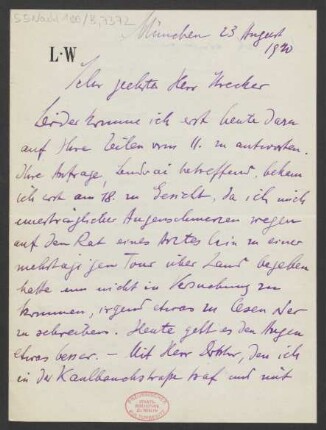 München 23 August
1920
L·W
Sehr geehrter Herr Strecker
Leider komme ich erst heute dazu
auf Ihre Zeilen vom 11. zu antworten.
Ihre Anfrage, betreffend, bekam
ich erst am 18. zu Gesicht, da ich mich
unerträglicher Augenschmerzen wegen
auf den Rat eines Arztes hin zu einer
mehrtägigen Tour über Land begeben
hatte um nicht in Versuchung zu
kommen, irgend etwas zu lesen oder
zu schreiben. Heute geht es den Augen
etwas besser. — Mit Herr, den ich
in der Kaulbachstraße traf und mit